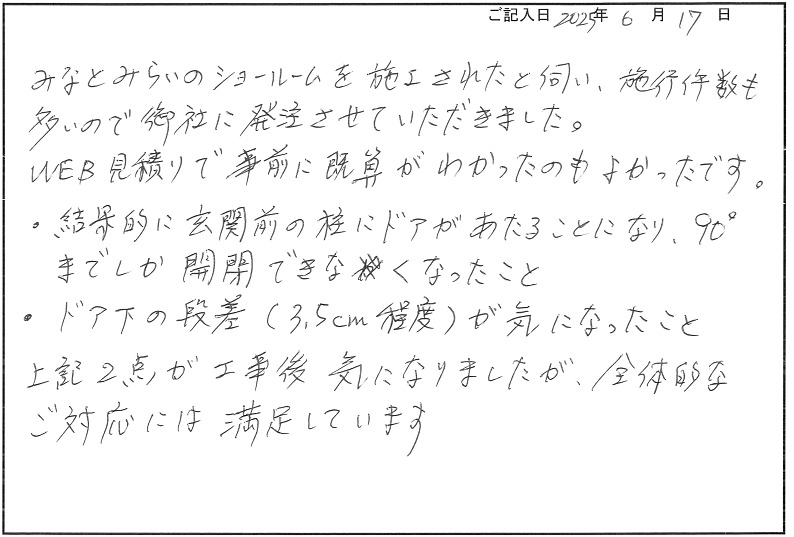 ご記入日 2025年 6 月 17 日
みなとみらいのショールームを施工されたと伺い、施行件数も
多いので御社に発注させていただきました。
WEB見積りで事前に概算がわかったのもよかったです。
・結果的に玄関前の柱にドアがあたることになり、90°
までしか開閉できなくなったこと
・ドア下の段差(3.5cm程度)が気になったこと
上記2点が工事後気になりましたが、全体的な
ご対応には満足しています